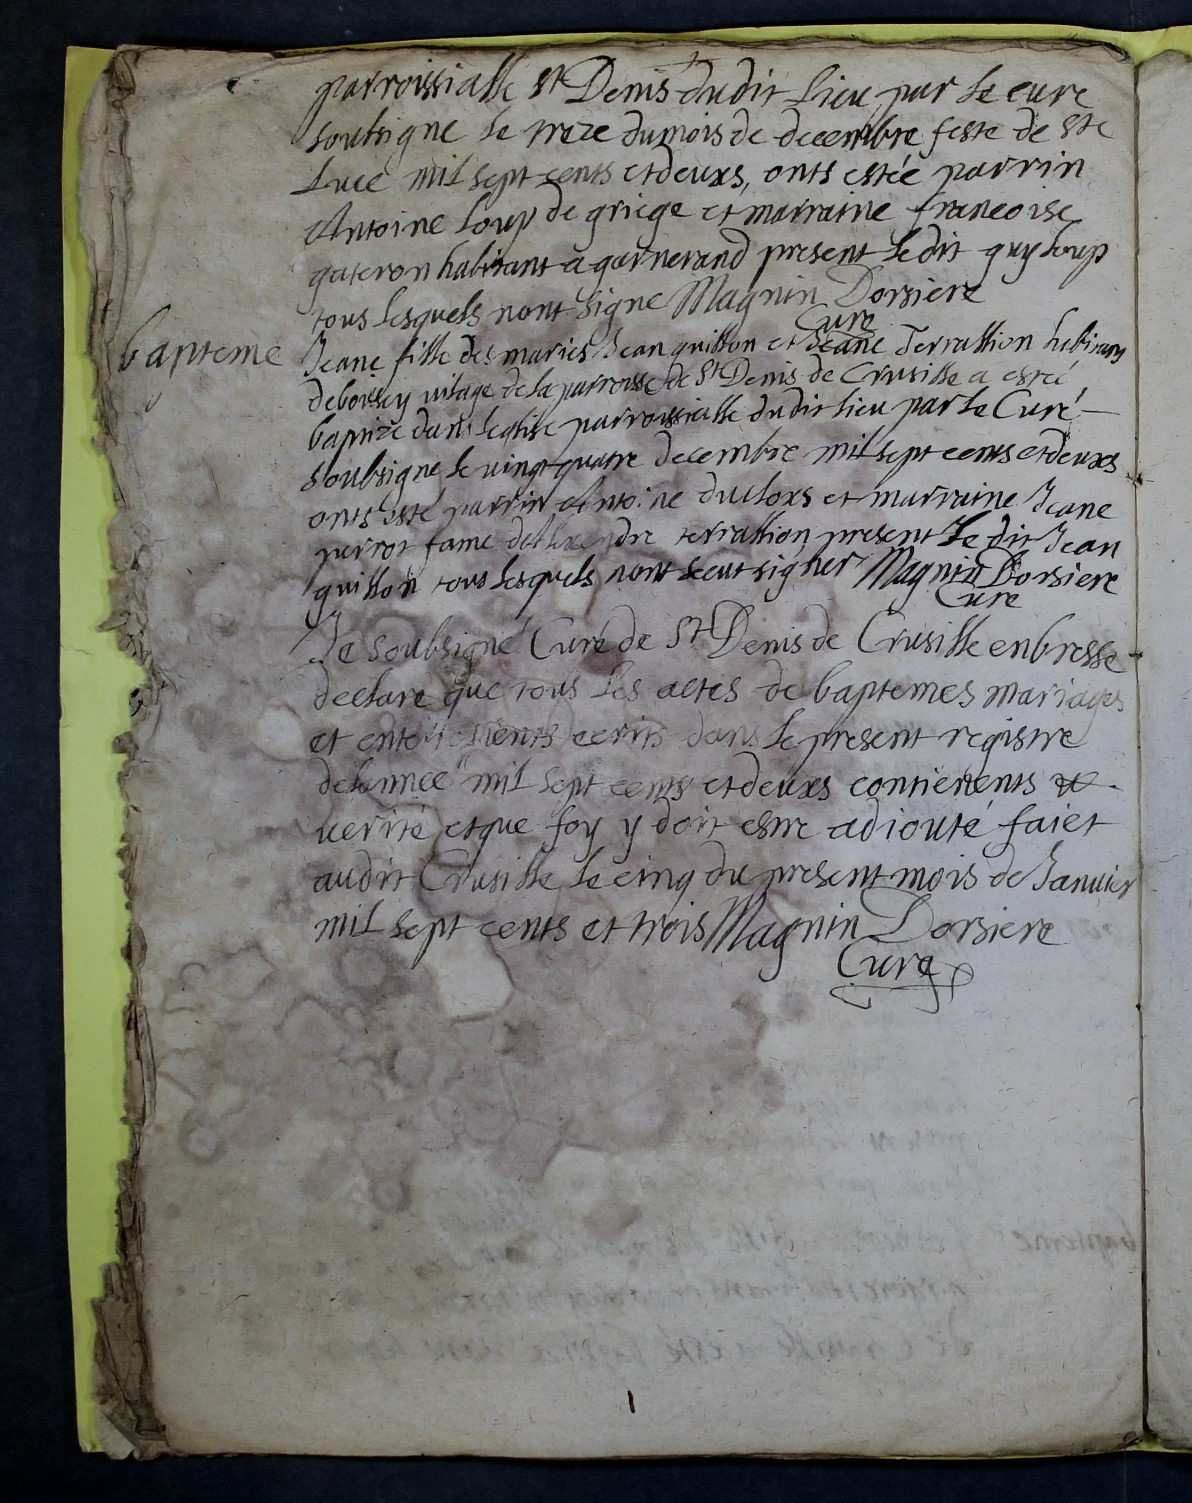 parroissialle St Denis dudit lieu par le cure
soubsigne le treze du mois de decembre feste de Ste
Luce mil sept cents et deuxs, onts estée parrin
Antoine Loup de griege et marraine francoise
gateron habitant a garnerand present ledit guy loup
tous lesquels nont signe Magnin Dorsiere
Cure
bapteme Jeane fille des mariés Jean guillon et Jeane Terrallion habitans
de boissey vilage de la parroisse de St Denis de Crusille a esteé
baptize dans leglise parroissialle dudit lieu par le Curé
soubsigne le vingt quatre decembre mil sept cents et deuxs
onts esté parrin Antoine ducloxs et marraine Jeane
perrot fame terrallion present le dit Jean
guillon tous lesquels nont sceut signer Magnin Dorsiere
Cure
Je soubsigné Curé de St Denis de Crusille en bresse
declare que tous les actes de baptemes mariages
et enterrements ecrits dans le present registre
de lannee mil sept cents et deuxs contienents
verité et que foy y doit estre adiouté faict
audit Crusille le cinq du present mois de Januier
mil sept cents et trois Magnin Dorsiere
Cure
1